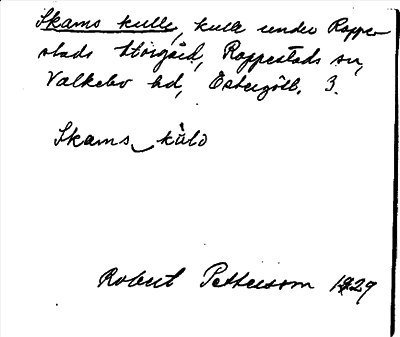 Skams kulle, kulle under Rappe-
stads Storgård, Rappestads sn,
Valkebo hd, Östergötl. 3.
Skams kùlo
Robert Petterson 1929